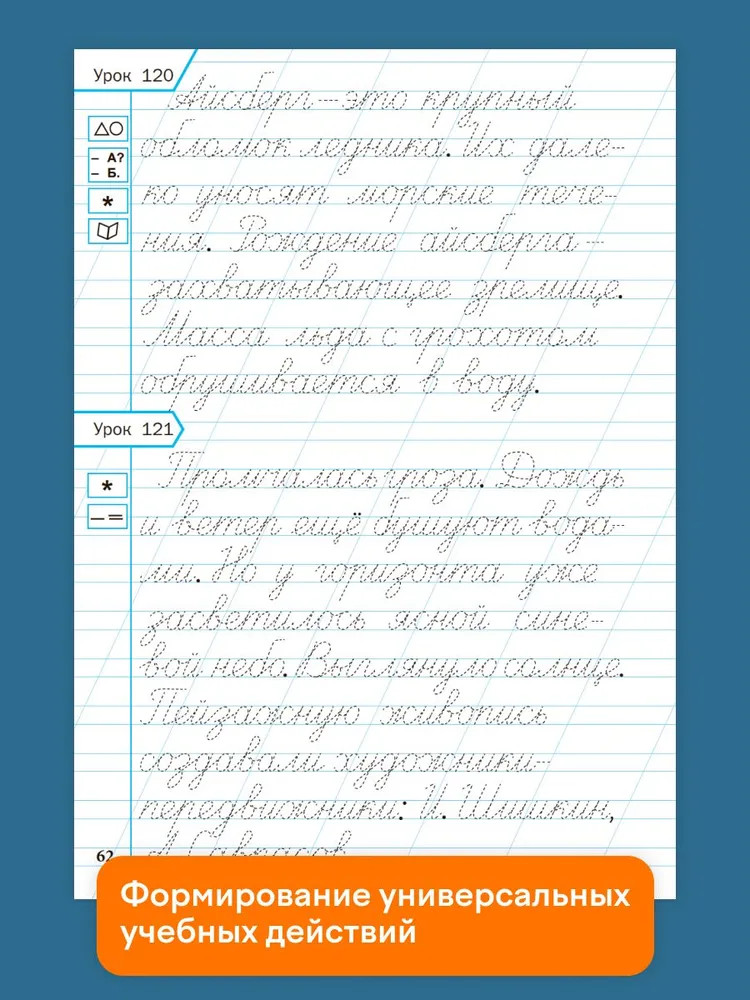 Урок 120
Айсберг – это крупный
обломок ледника. Их дале-
ко уносят морские тече-
ния. Рождение айсберга –
захватывающее зрелище.
Масса льда с грохотом
обрушивается в воду.
△○
– А?
– Б.
*
Урок 121
Промчалась гроза. Дождь
и ветер ещё бушуют вода-
ми. Но у горизонта уже
засветилось ясной сине-
вой небо. Выглянуло солнце.
Пейзажную живопись
создавали художники-
передвижники: И. Шишкин,
А. Саврасов
*
– =
62
Формирование универсальных
учебных действий